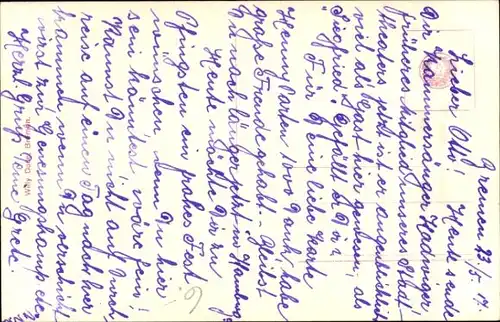 Bremen 13/5. 17.
Lieber Otto! Heute sende
Dir Kammersänger Hadwiger
früheres Mitglied unseres Stadt-
theaters, jetzt ist er augenblicklich
viel als Gast hier gewesen, als
"Siegfried". Gefällt er Dir?
Für Deine liebe Karte
Henny Porten 1000 Dank, habe
große Freude gehabt. - Bleibst
Du noch länger jetzt in Hamburg
Heute möchte Dir zu
Pfingsten ein frohes Fest
wünschen, wenn Du hier
sein könntest wäre fein!
Kannst Du nicht auf Durch-
reise auf einen Tag nach hier
kommen wenn Du verschickt
wirst zur Genesungskomp. etc.
Herzl. Gruß Deine Gretl.